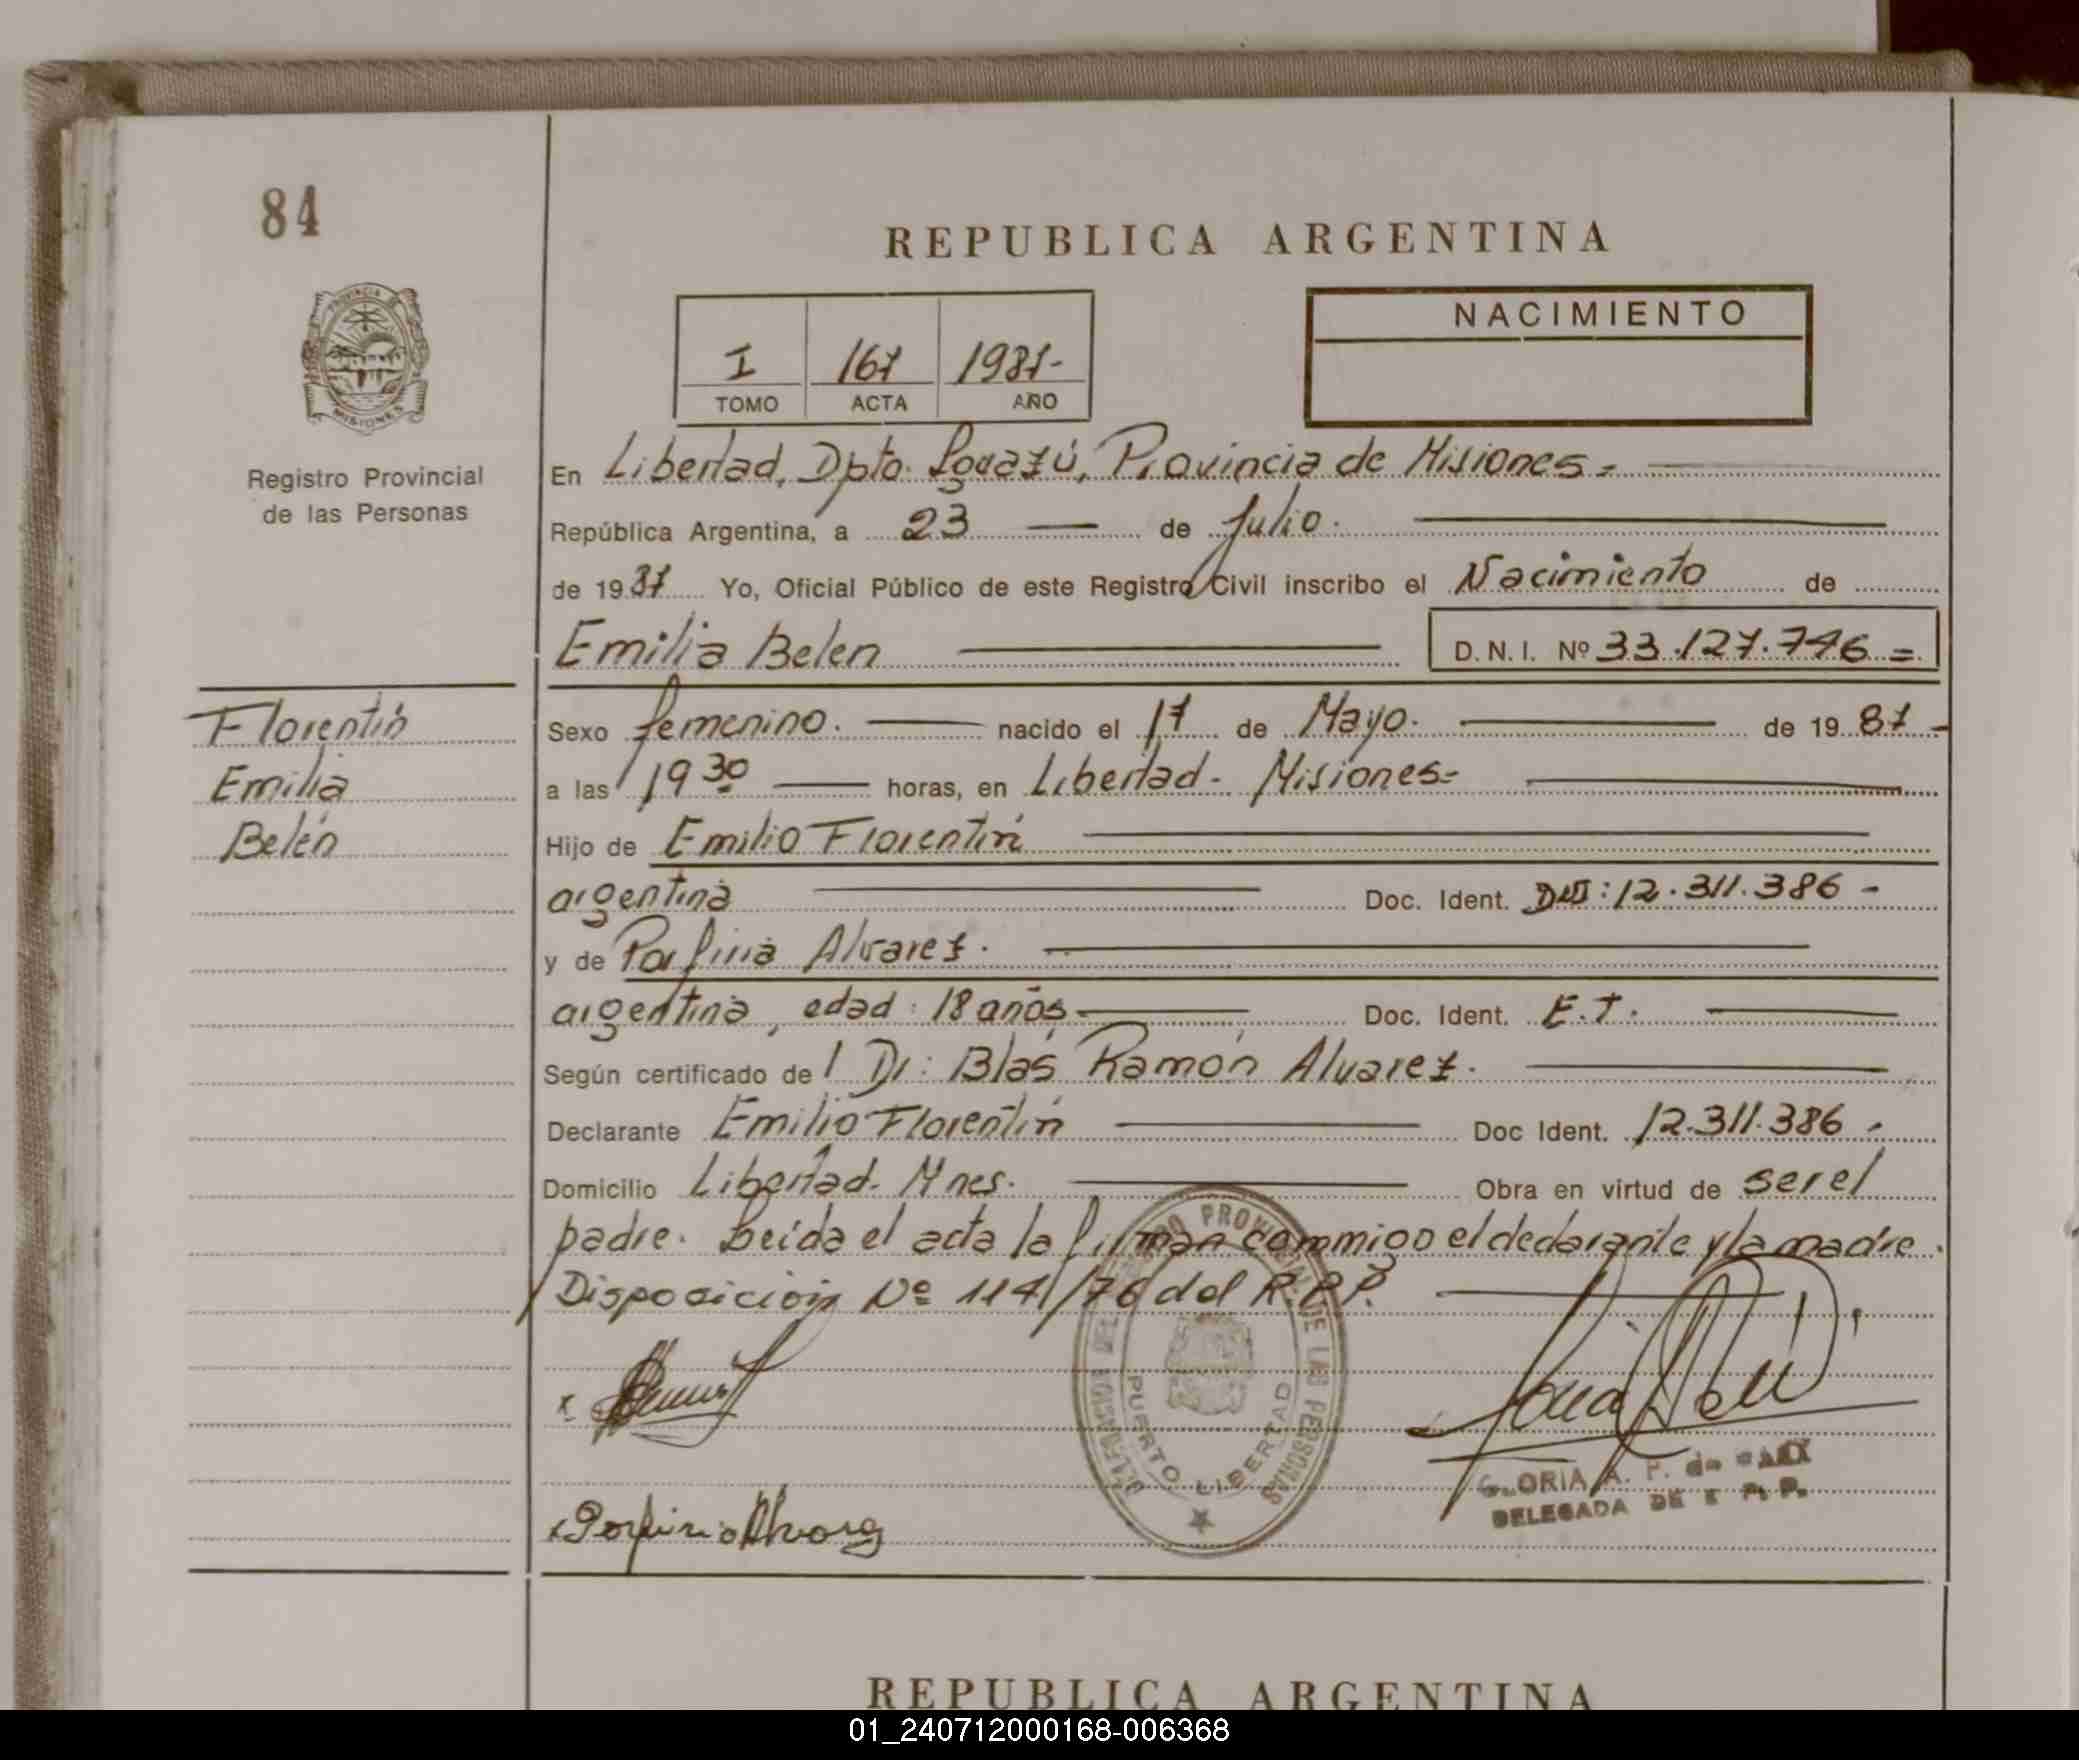 84
REPUBLICA ARGENTINA
PROVINCIA DE
MISIONES
Registro Provincial
de las Personas
I 167 1987-
TOMO ACTA AÑO
NACIMIENTO
En Libertad, Dpto. Iguazú, Provincia de Misiones =
República Argentina, a 23 de Julio.
de 19 87 Yo, Oficial Público de este Registro Civil inscribo el Nacimiento de
Emilia Belen D.N.I. Nº 33.127.746 =
Florentín
Emilia
Belén
Sexo femenino. nacido el 17 de Mayo. de 19 87 -
a las 19 30 horas, en Libertad - Misiones =
Hijo de Emilio Florentín
argentina Doc. Ident. DNI: 12.311.386 -
y de Porfiria Alvarez.
argentina, edad: 18 años Doc. Ident. E.T.
Según certificado de Dr: Blás Ramón Alvarez.
Declarante Emilio Florentín Doc Ident. 12.311.386.
Domicilio Libertad - Mnes. Obra en virtud de ser el
padre. Leída el acta la firman commigo el declarante y la madre.
Disposición Nº 114/76 del R.P.P.
PROVINCIAL DE LAS PERSONAS
PUERTO LIBERTAD
GLORIA A. P. de
DELEGADA DE R. P. P.
REPUBLICA ARGENTINA
01_240712000168-006368